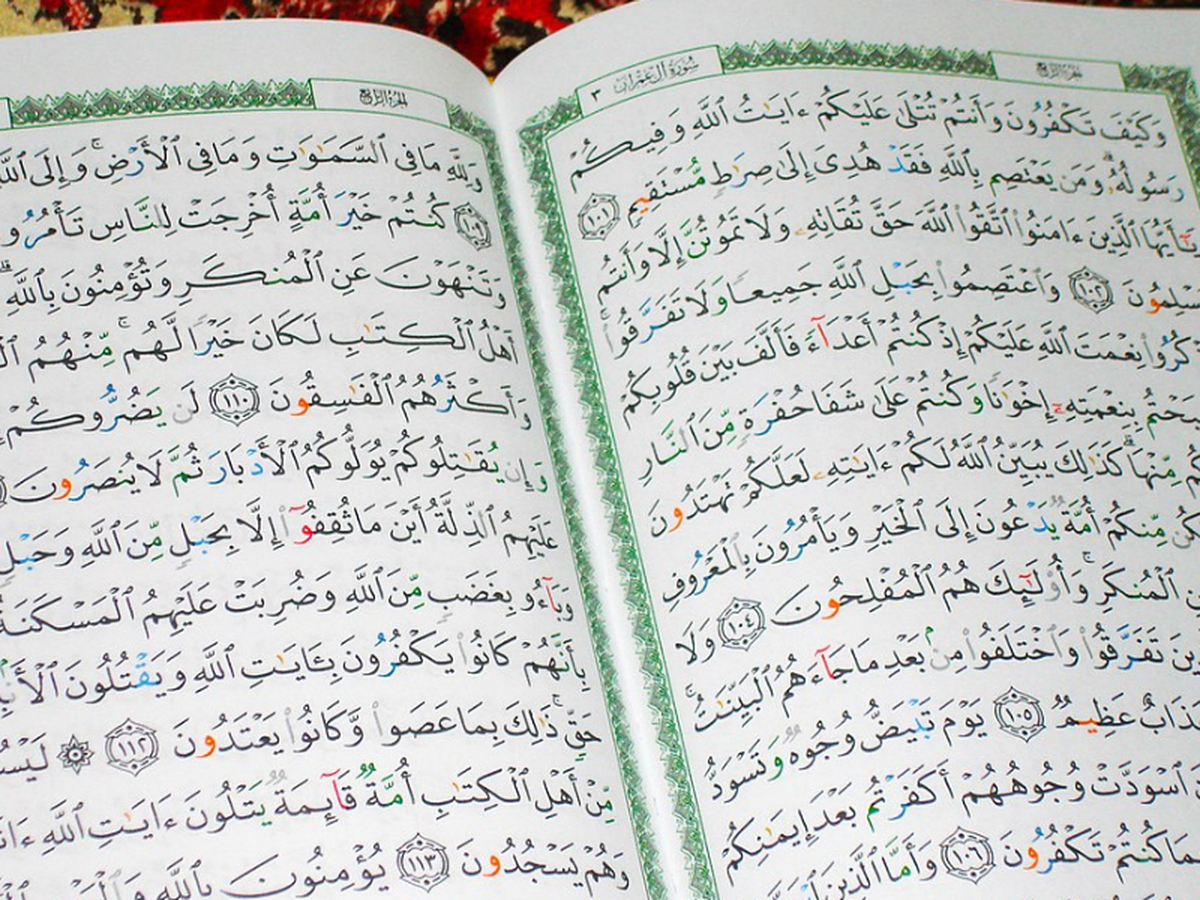 سورة آل عمران ٣
الجزء الرابع
وَكَيْفَ تَكْفُرُونَ وَأَنتُمْ تُتْلَىٰ عَلَيْكُمْ ءَايَـٰتُ ٱللَّهِ وَفِيكُمْ
رَسُولُهُۥ ۗ وَمَن يَعْتَصِم بِٱللَّهِ فَقَدْ هُدِىَ إِلَىٰ صِرَٰطٍ مُّسْتَقِيمٍ ١٠١
يَـٰٓأَيُّهَا ٱلَّذِينَ ءَامَنُوا۟ ٱتَّقُوا۟ ٱللَّهَ حَقَّ تُقَاتِهِۦ وَلَا تَمُوتُنَّ إِلَّا وَأَنتُم
سْلِمُونَ ١٠٢ وَٱعْتَصِمُوا۟ بِحَبْلِ ٱللَّهِ جَمِيعًا وَلَا تَفَرَّقُوا۟ ۚ
ذْكُرُوا۟ نِعْمَتَ ٱللَّهِ عَلَيْكُمْ إِذْ كُنتُمْ أَعْدَآءً فَأَلَّفَ بَيْنَ قُلُوبِكُمْ
بَحْتُم بِنِعْمَتِهِۦٓ إِخْوَٰنًا وَكُنتُمْ عَلَىٰ شَفَا حُفْرَةٍ مِّنَ ٱلنَّارِ
كُم مِّنْهَا ۗ كَذَٰلِكَ يُبَيِّنُ ٱللَّهُ لَكُمْ ءَايَـٰتِهِۦ لَعَلَّكُمْ تَهْتَدُونَ
كُن مِّنكُمْ أُمَّةٌ يَدْعُونَ إِلَى ٱلْخَيْرِ وَيَأْمُرُونَ بِٱلْمَعْرُوفِ
نِ ٱلْمُنكَرِ ۚ وَأُو۟لَـٰٓئِكَ هُمُ ٱلْمُفْلِحُونَ ١٠٤ وَلَا
ينَ تَفَرَّقُوا۟ وَٱخْتَلَفُوا۟ مِنۢ بَعْدِ مَا جَآءَهُمُ ٱلْبَيِّنَـٰتُ ۚ
ذَابٌ عَظِيمٌ ١٠٥ يَوْمَ تَبْيَضُّ وُجُوهٌ وَتَسْوَدُّ
ٱسْوَدَّتْ وُجُوهُهُمْ أَكَفَرْتُم بَعْدَ إِيمَـٰنِكُمْ
مَا كُنتُمْ تَكْفُرُونَ ١٠٦ وَأَمَّا ٱلَّذِينَ
الجزء الرابع
وَلِلَّهِ مَا فِى ٱلسَّمَـٰوَٰتِ وَمَا فِى ٱلْأَرْضِ ۚ وَإِلَى ٱللَّهِ
١٠٩ كُنتُمْ خَيْرَ أُمَّةٍ أُخْرِجَتْ لِلنَّاسِ تَأْمُرُو
وَتَنْهَوْنَ عَنِ ٱلْمُنكَرِ وَتُؤْمِنُونَ بِٱللَّهِ ۗ
أَهْلُ ٱلْكِتَـٰبِ لَكَانَ خَيْرًا لَّهُم ۚ مِّنْهُمُ
وَأَكْثَرُهُمُ ٱلْفَـٰسِقُونَ ١١٠ لَن يَضُرُّوكُمْ
وَإِن يُقَـٰتِلُوكُمْ يُوَلُّوكُمُ ٱلْأَدْبَارَ ثُمَّ لَا يُنصَرُونَ
عَلَيْهِمُ ٱلذِّلَّةُ أَيْنَ مَا ثُقِفُوٓا۟ إِلَّا بِحَبْلٍ مِّنَ ٱللَّهِ وَحَبْلٍ
وَبَآءُو بِغَضَبٍ مِّنَ ٱللَّهِ وَضُرِبَتْ عَلَيْهِمُ ٱلْمَسْكَنَةُ
بِأَنَّهُمْ كَانُوا۟ يَكْفُرُونَ بِـَٔايَـٰتِ ٱللَّهِ وَيَقْتُلُونَ ٱلْأَنۢبِ
حَقٍّ ۚ ذَٰلِكَ بِمَا عَصَوا۟ وَّكَانُوا۟ يَعْتَدُونَ ١١٢ لَيْسُ
مِّنْ أَهْلِ ٱلْكِتَـٰبِ أُمَّةٌ قَآئِمَةٌ يَتْلُونَ ءَايَـٰتِ ٱللَّهِ ءَانَ
وَهُمْ يَسْجُدُونَ ١١٣ يُؤْمِنُونَ بِٱللَّهِ